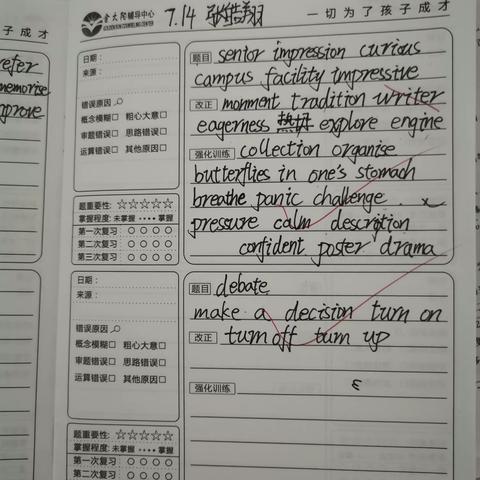 金太阳辅导中心
GOLDEN SUN COUNSELING CENTER
7.14 张皓翔
一切为了孩子成才
成才
refer
memorise
improve
日期：
来源：
错误原因
概念模糊□ 粗心大意□
审题错误□ 思路错误□
运算错误□ 其他原因□
题重要性: ☆☆☆☆☆
掌握程度: 未掌握 •••• 掌握
第一次复习 ○ ○ ○ ○
第二次复习 ○ ○ ○ ○
第三次复习 ○ ○ ○ ○
题目 senior impression curious
campus facility impressive
改正 monment tradition writer
eagerness 热切 explore engine
强化训练 collection organise
butterflies in one's stomach
breathe panic challenge
pressure calm description
confident poster drama
日期：
来源：
错误原因
概念模糊□ 粗心大意□
审题错误□ 思路错误□
运算错误□ 其他原因□
题重要性: ☆☆☆☆☆
掌握程度: 未掌握 •••• 掌握
第一次复习 ○ ○ ○ ○
第二次复习 ○ ○ ○ ○
题目 debate
make a decision turn on
改正 turn off turn up
强化训练